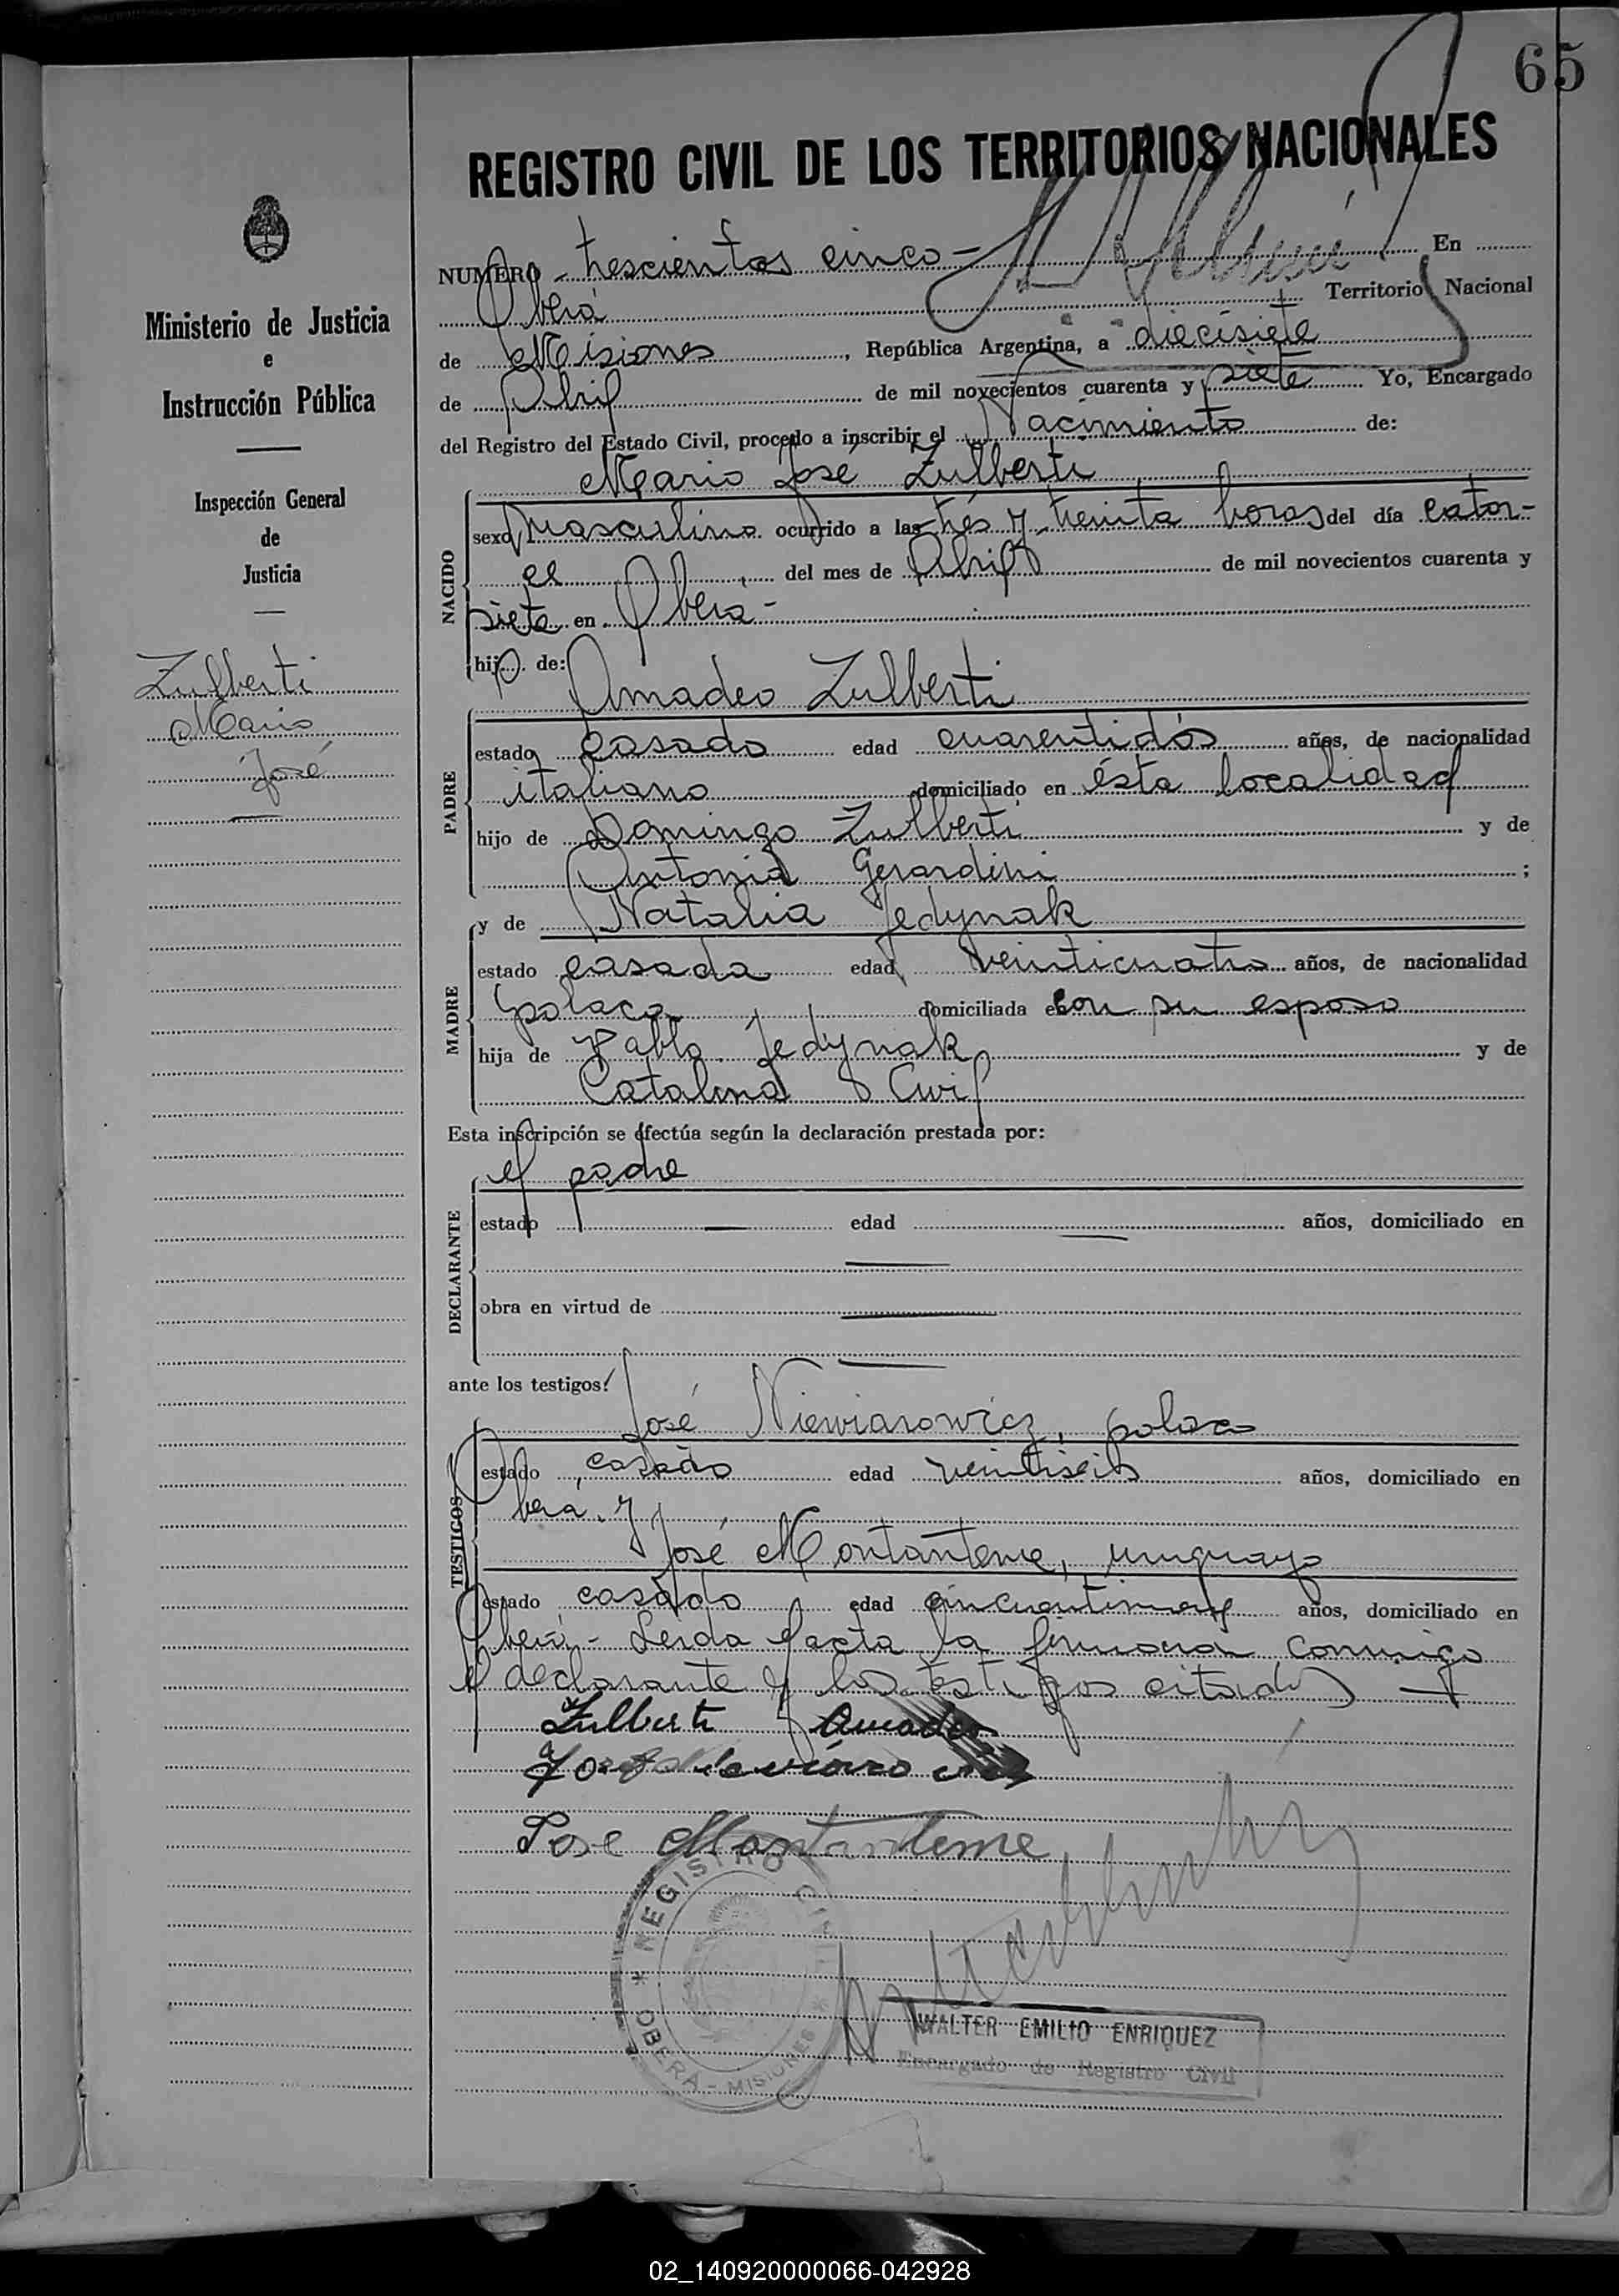 65
REGISTRO CIVIL DE LOS TERRITORIOS NACIONALES
NUMERO trescientos cinco - En
Oberá Territorio Nacional
de Misiones, República Argentina, a diecisiete
de Abril de mil novecientos cuarenta y siete Yo, Encargado
del Registro del Estado Civil, procedo a inscribir el Nacimiento de:
Mario José Zulberti
NACIDO
sexo masculino ocurrido a las tres y treinta horas del día cator-
ce del mes de Abril de mil novecientos cuarenta y
siete en Oberá -
hijo de:
Amadeo Zulberti
PADRE
estado casado edad cuarentidós años, de nacionalidad
italiano domiciliado en ésta localidad
hijo de Domingo Zulberti y de
Antonia Gerardini ;
y de Natalia Jedynak
MADRE
estado casada edad veinticuatro años, de nacionalidad
polaca domiciliada con su esposo
hija de Pablo Jedynak y de
Catalina Cwif
Esta inscripción se efectúa según la declaración prestada por:
el padre
DECLARANTE
estado — edad — años, domiciliado en
—
obra en virtud de —
—
ante los testigos:
José Niewiarowicz, polaco
TESTIGOS
estado casado edad veintiseis años, domiciliado en
Oberá, y
José Montanteme, uruguayo
estado casado edad años, domiciliado en
Oberá,- Leida el acta la firman conmigo
el declarante y los testigos citados —
Zulberti Amadeo
Jose Montanteme
REGISTRO CIVIL
* OBERA - MISIONES *
WALTER EMILIO ENRIQUEZ
Encargado de Registro Civil
Ministerio de Justicia
e
Instrucción Pública
Inspección General
de
Justicia
Zulberti
Mario
José
—
02_140920000066-042928